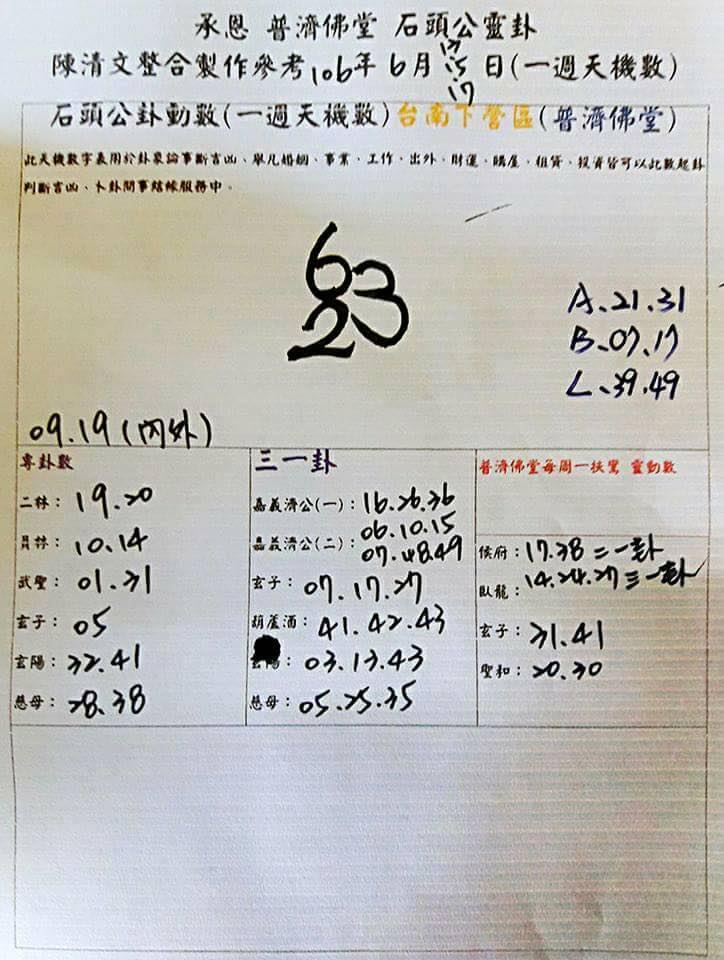 承恩 普濟佛堂 石頭公靈卦
陳清文整合製作參考106年6月13.15.17日(一週天機數)
石頭公卦動數(一週天機數)台南下營區(普濟佛堂)
此天機數字表用於卦象論事斷吉凶、舉凡婚姻、事業、工作、出外、財運、購屋、租賃、投資皆可以此數起卦
判斷吉凶、卜卦問事結緣服務中。
63
23
A.21.31
B.07.17
L.39.49
09.19(內外)
專卦數
二林:19.20
員林:10.14
武聖:01.31
玄子:05
玄陽:32.41
慈母:28.38
三一卦
嘉義濟公(一):16.26.36
嘉義濟公(二):06.10.15
07.48.49
玄子:07.17.27
葫蘆酒:41.42.43
陽:03.13.43
慈母:05.25.35
普濟佛堂每周一扶鸞 靈動數
侯府:17.38二一卦
臥龍:14.24.27三一卦
玄子:31.41
聖和:20.30